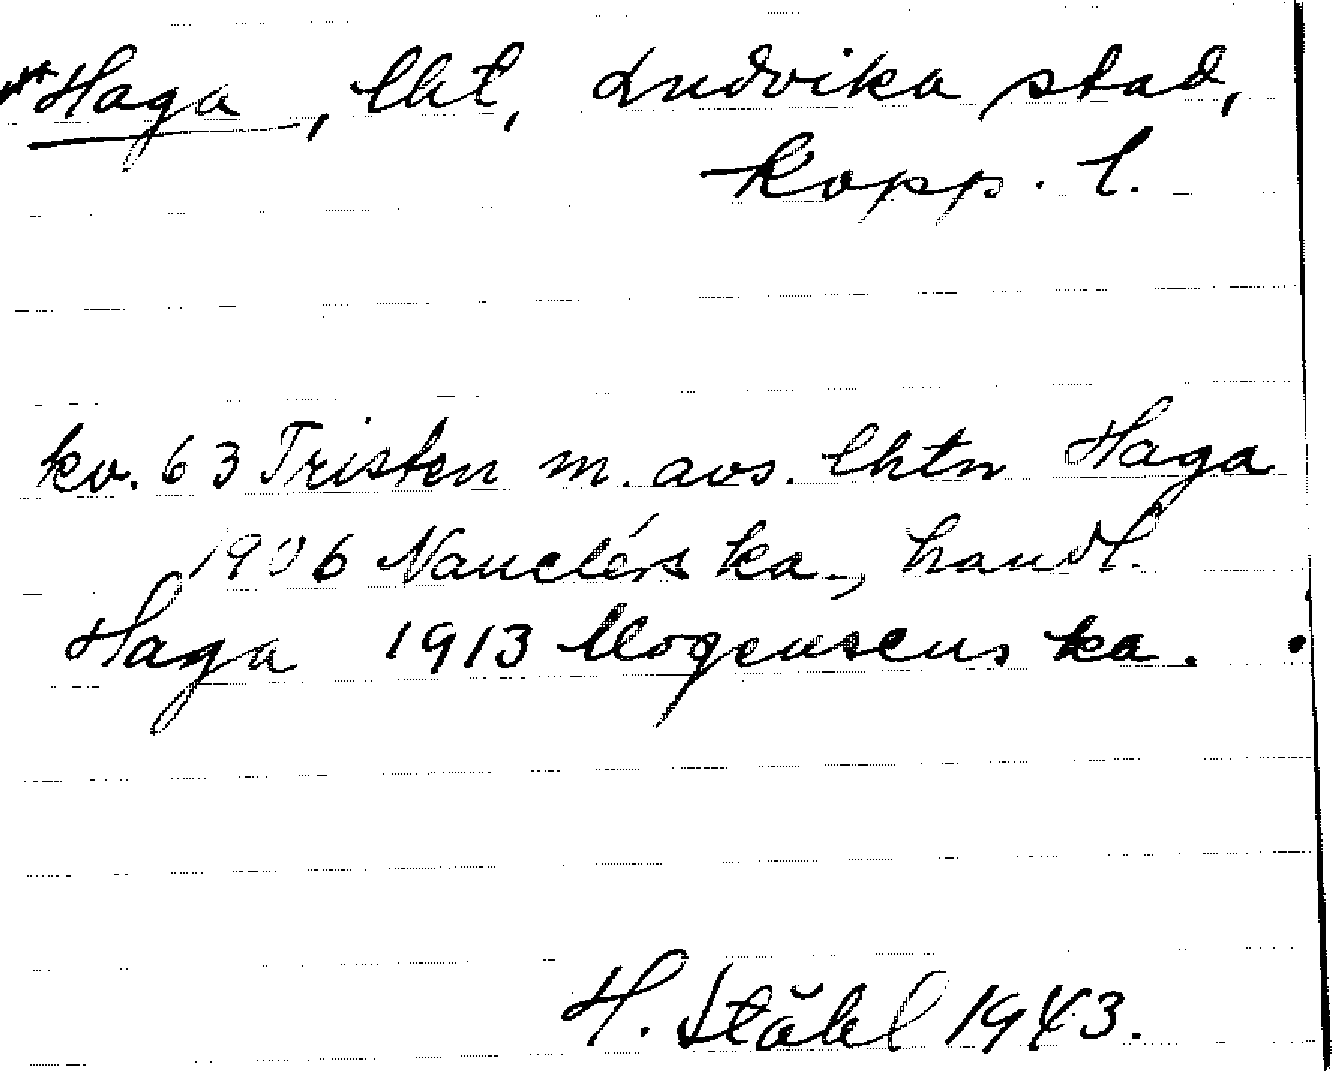 *Haga, lht, Ludvika stad,
Kopp. l.
kv. 63 Tristen m. avs. lhtn Haga
1906 Nauclérs ka., handl.
Haga 1913 Mogensens ka.
H. Ståhl 1943.